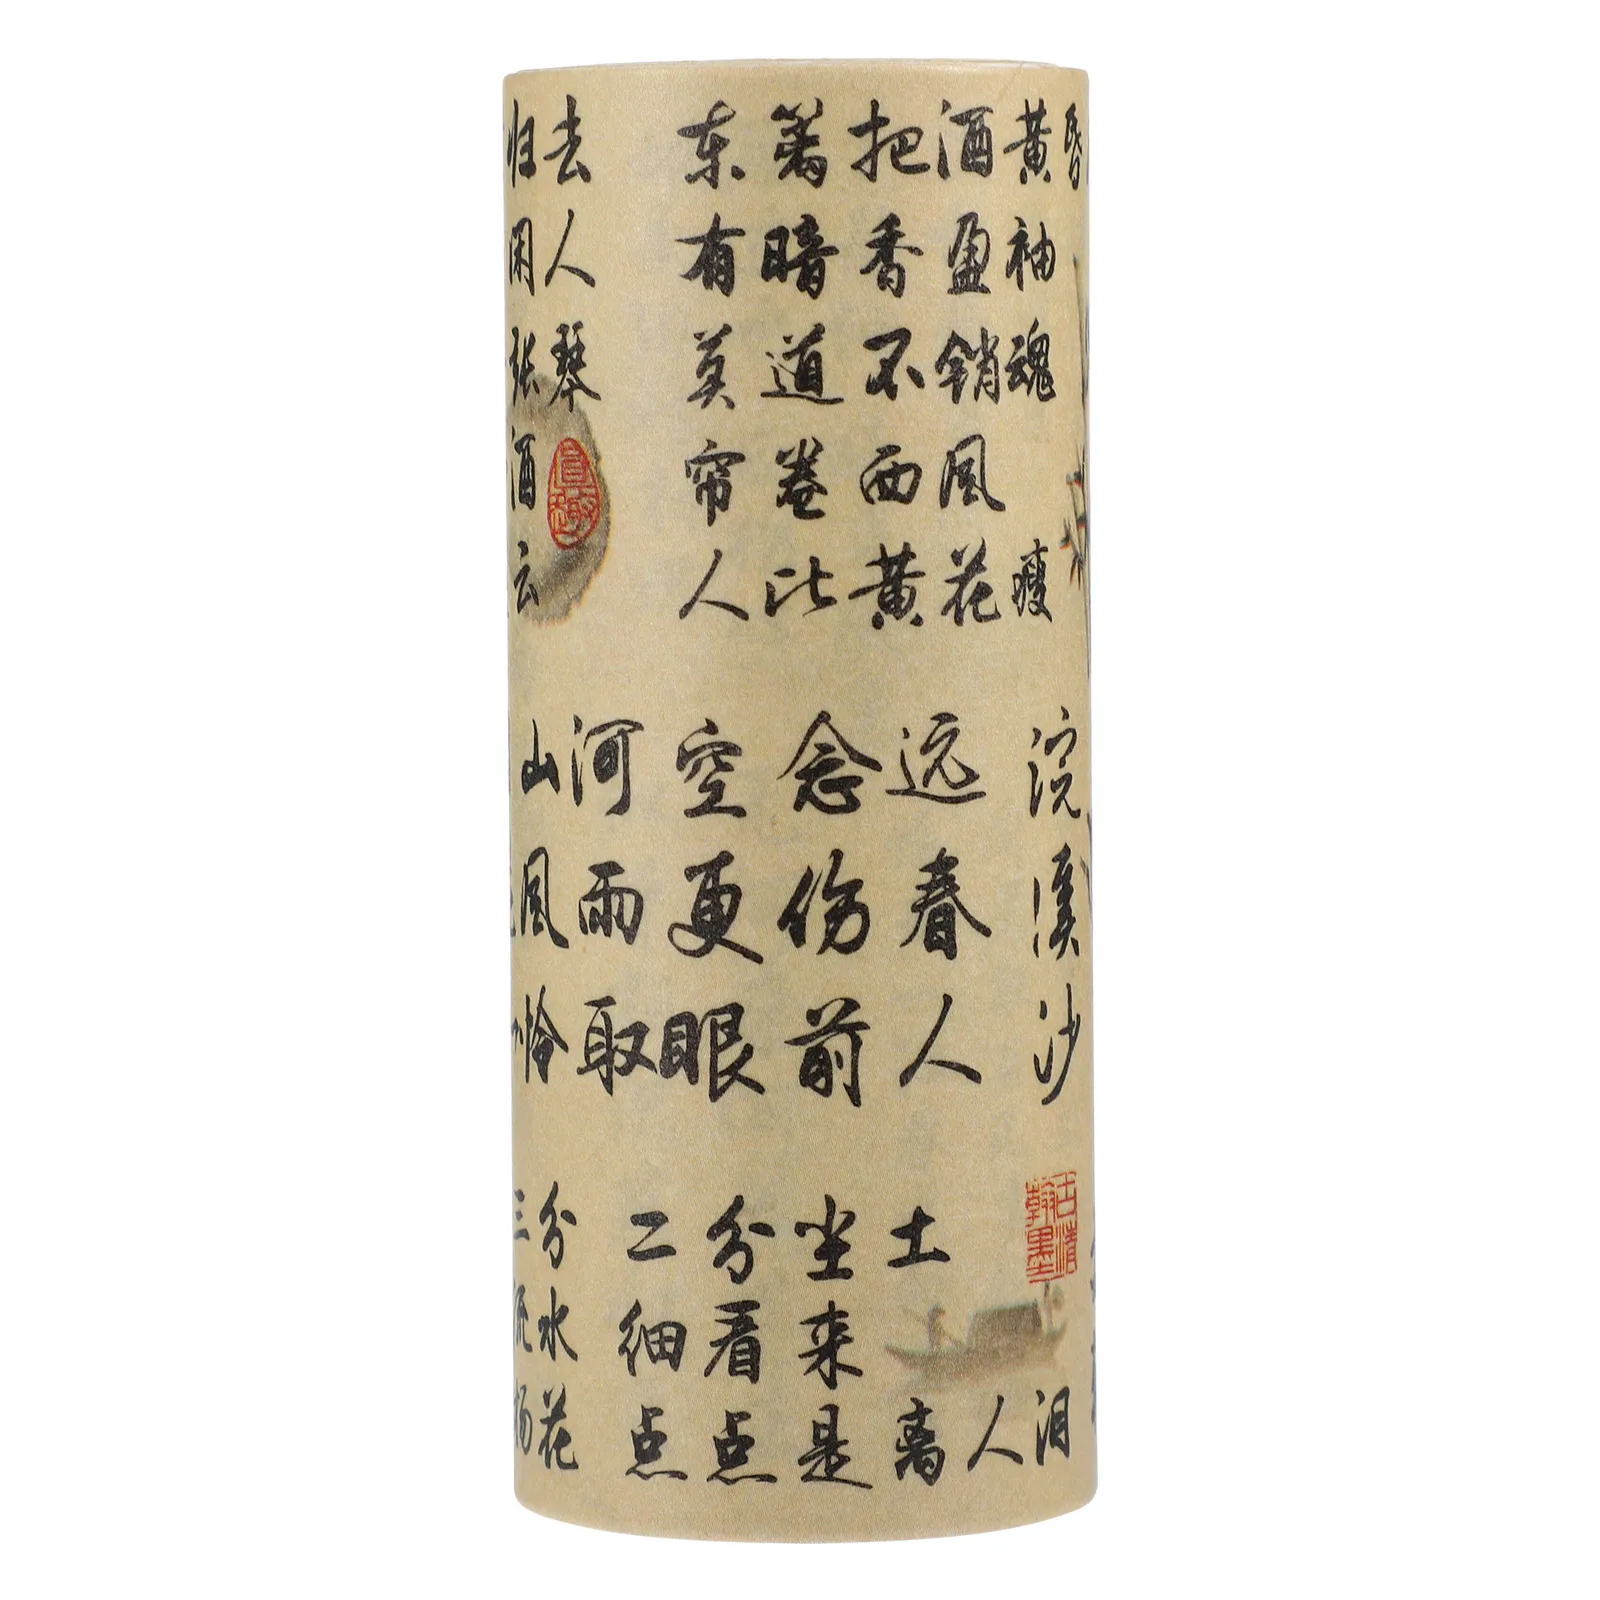 归去
闲人
张琴
酒
云
东篱把酒黄昏
有暗香盈袖
莫道不销魂
帘卷西风
人比黄花瘦
山河空念远
风雨更伤春
怜取眼前人
浣溪沙
三分
流水
杨花
二分尘土
细看来
点点是离人泪